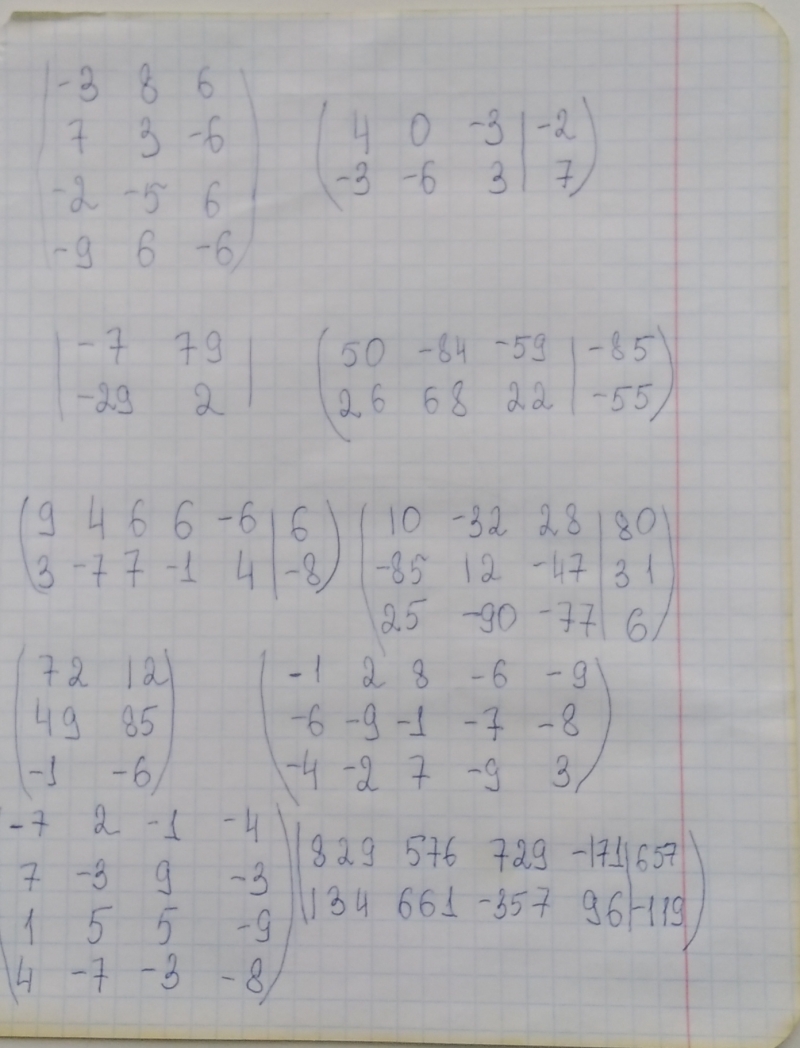 -3 8 6
7 3 -6
-2 -5 6
-9 6 -6
4 0 -3 | -2
-3 -6 3 | 7
-7 79
-29 2
50 -84 -59 | -85
26 68 22 | -55
9 4 6 6 -6 | 6
3 -7 7 -1 4 | -8
10 -32 28 | 80
-85 12 -47 | 31
25 -90 -77 | 6
72 12
49 85
-1 -6
-1 2 8 -6 -9
-6 -9 -1 -7 -8
-4 -2 7 -9 3
-7 2 -1 -4
7 -3 9 -3
1 5 5 -9
4 -7 -3 -8
829 576 729 -171 | 657
134 661 -357 96 | -119